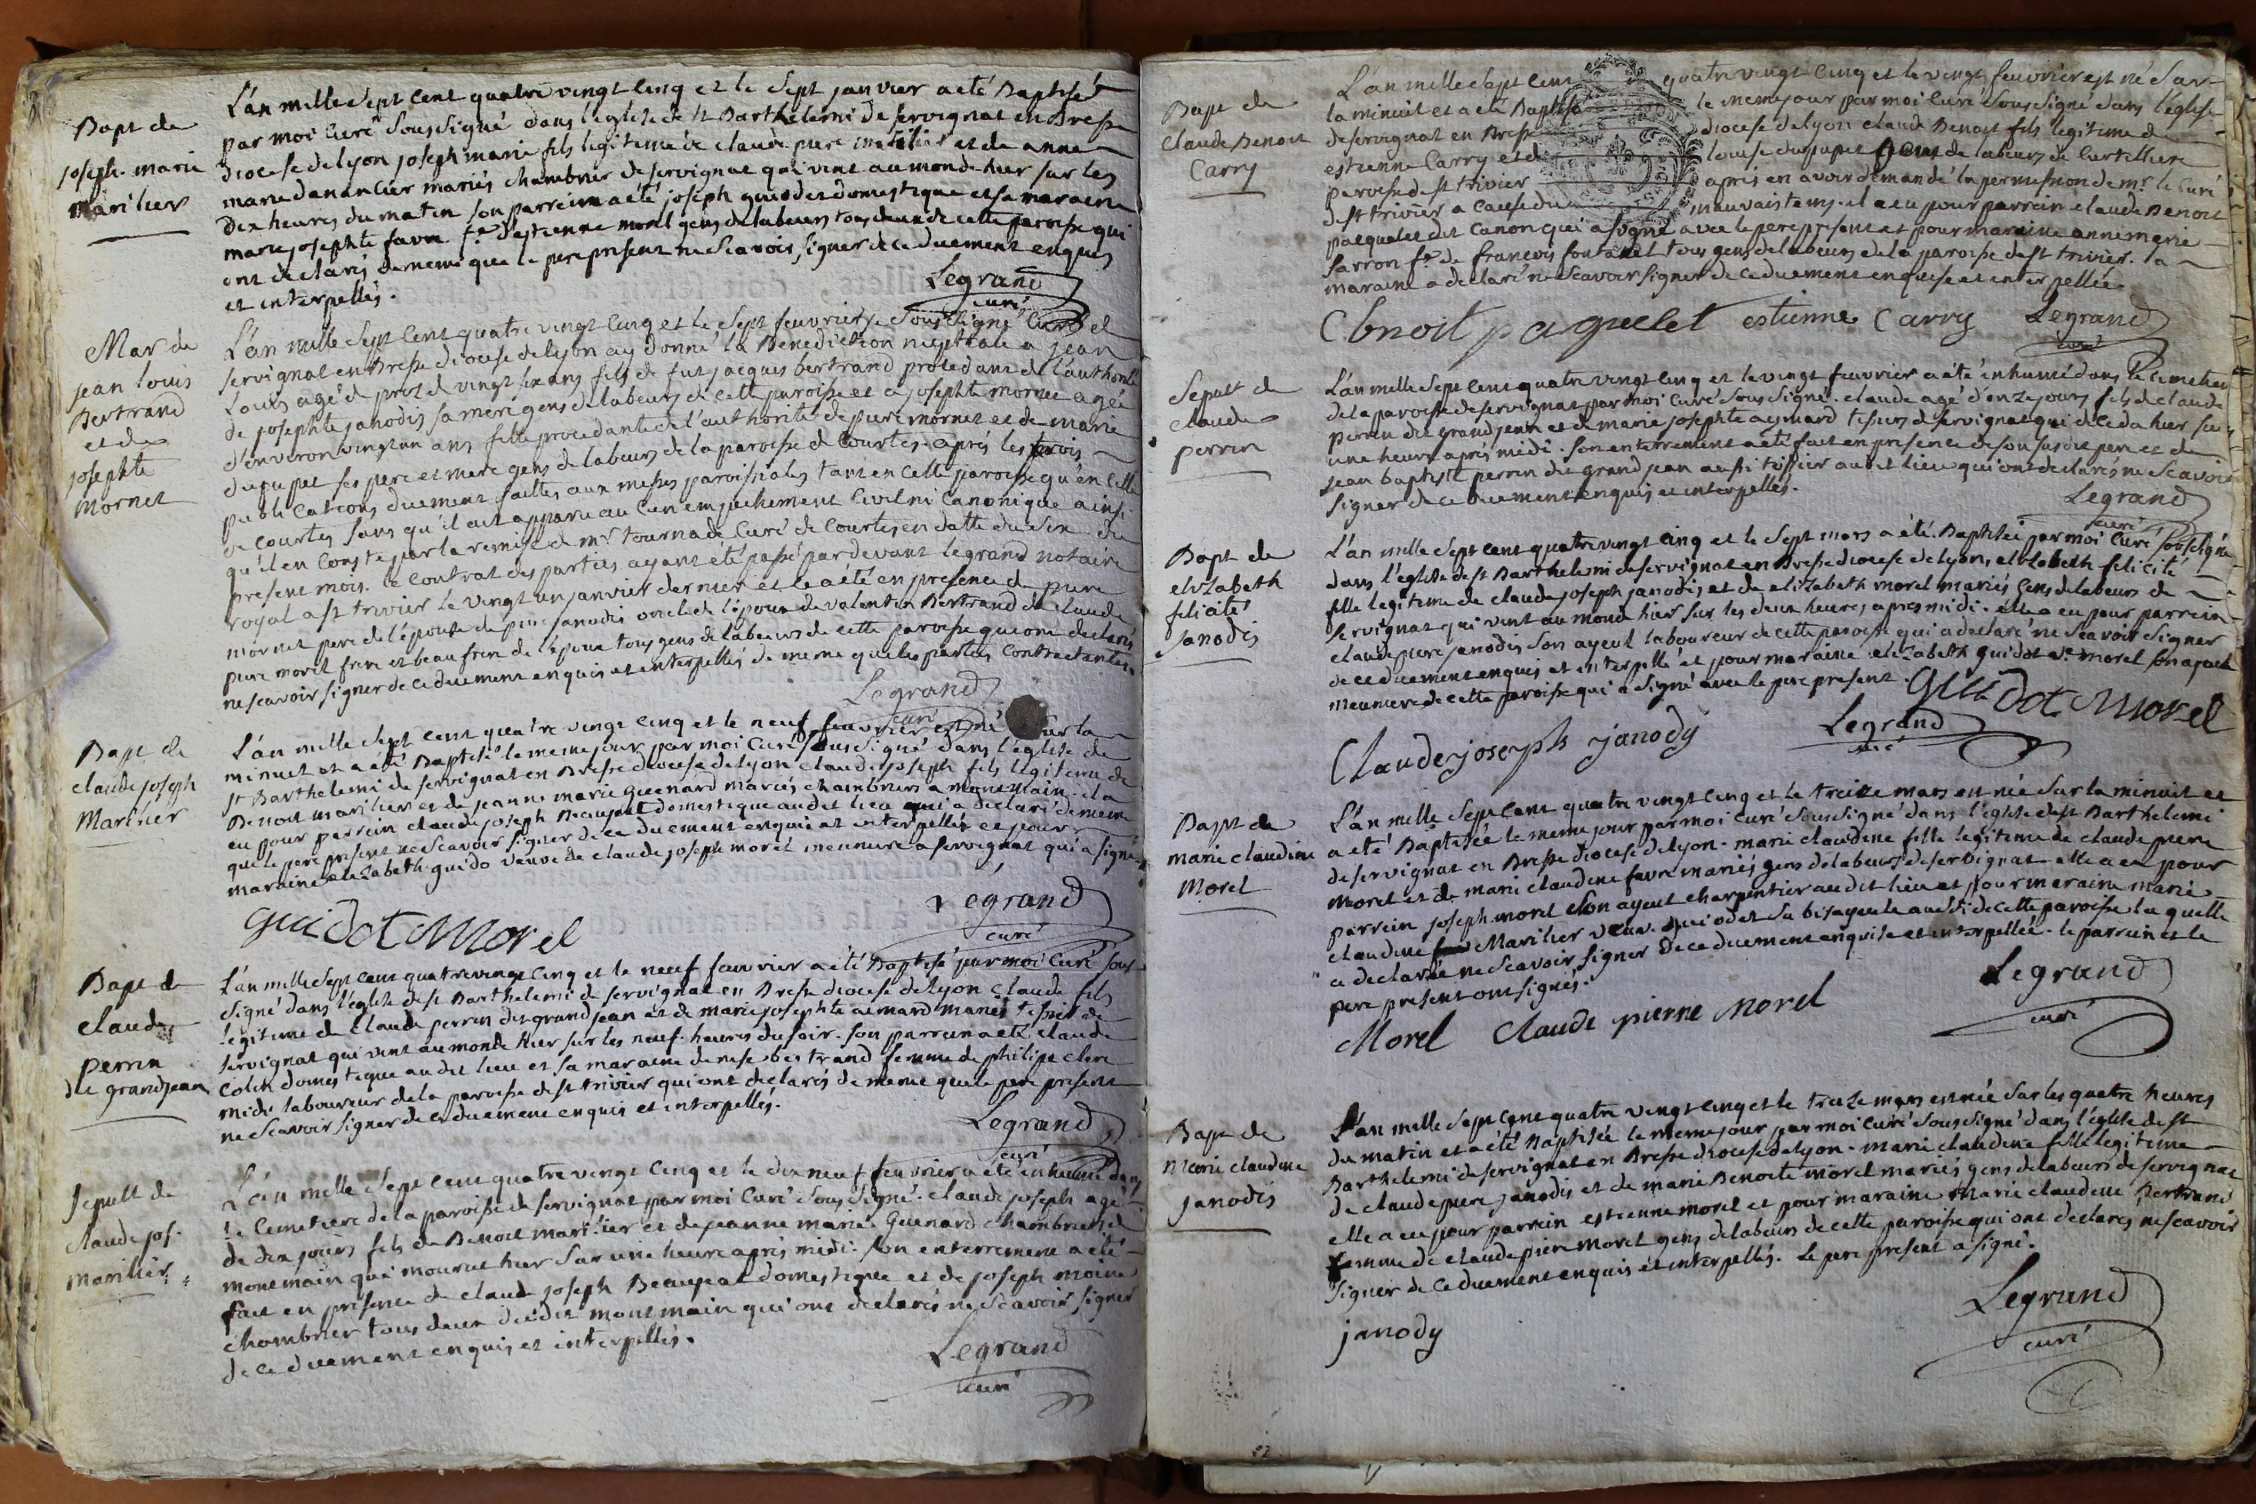 Bapt de
joseph-marie
marilier
L'an mille sept cent quatre vingt cinq et le sept janvier a eté Baptisé
par moi curé soussigné dans l'eglise de st Barthelemi de servignat en Bresse
diocese de lyon joseph marie fils legitime de claude piere marilier et de anne
marie danancier mariés chambrier de servignat qui vint au monde hier sur les
dix heures du matin son parrein a été joseph guiodet domestique et sa maraine
marie josephte favre fe d'estienne morel gens de labeurs tous deux de cette paroisse qui
ont declarés de meme que le pere present ne scavoir signer de ce duement enquis
et interpellés.
Legrand
curé
Mar de
jean louis
Bertrand
et de
josephte
mornet
L'an mille sept cent quatre vingt cinq et le sept feuvrier je soussigné curé de
servignat en Bresse diocese de lyon ay donné la Benediction nuptiale a jean
Louis agé de pres de vingt six ans fils de fut jacques bertrand procedant de l'authorité
de josephte janodis sa mere gens de labeurs de cette paroisse et a josephte mornet agée
d'environ vingt un ans fille procedante de l'authorité de piere mornet et de marie
dupupet ses pere et mere gens de labeurs de la paroisse de courtes. aprés les trois
publications duement faittes aux messes paroissiales tant en cette paroisse qu'en celle
de courtes sans qu'il ait apparu aucun empechement civil ni canonique ainsi
qu'il en conste par la remise de mr tournade curé de courtes en datte du six du
present mois. le contrat des parties ayant été passé pardevant legrand notaire
royal a st trivier le vingt un janvier dernier et le a été en presence de piere
mornet pere de l'épouse de piere janodis oncle de l'époux de valentin Bertrand de claude
piere morel frere et beau frere de l'époux tous gens de labeurs de cette paroisse qui ont declarés
ne scavoir signer de ce duement enquis et interpellés de meme que les parties contractantes.
Legrand
curé
Bapt de
claude joseph
Marilier
L'an mille sept cent quatre vingt cinq et le neuf feuvrier est né sur la
minuit et a été Baptisé le meme jour par moi curé soussigné dans l'église de
st Barthelemi de servignat en Bresse diocese de lyon claude joseph fils legitime de
Benoit marilier et de jeanne marie guenard mariés chambriers a montmain. il a
eu pour parrein claude joseph Beaupeat domestique audit lieu qui a declaré de meme
que le pere present ne scavoir signer de ce duement enquis et interpellés et pour
maraine elizabeth guido veuve de claude joseph morel meuniere a servignat qui a signé
Legrand
curé
guidot Morel
Bapt de
claude
perrin
dit grandjean
L'an mille sept cent quatre vingt cinq et le neuf feuvrier a été Baptisé par moi curé sous
signé dans l'église de st Barthelemi de servignat en Bresse diocese de lyon claude fils
légitime de claude perrin dit grand jean et de marie josephte aimard mariés tissier de
servignat qui vint au monde hier sur les neuf heures du soir. son parrein a été claude
colin domestique audit lieu et sa maraine denise bertrand femme de philipe clere
midi laboureur de la paroisse de st trivier qui ont declarés de meme que le pere present
ne scavoir signer de ce duement enquis et interpellés.
Legrand
curé
Sepult de
claude jos.
marilier
L'an mille sept cent quatre vingt cinq et le dix neuf feuvrier a été inhumé dans
le cemetiere de la paroisse de servignat par moi curé soussigné. claude joseph agé
de dix jours fils de Benoit marilier et de jeanne marie Guenard chambriers de
montmain qui mourut hier sur une heure aprés midi. son enterrement a été
fait en présence de claude joseph Beaupeat domestique et de joseph moine
chambrier tous deux dudit montmain qui ont declarés ne scavoir signer
de ce duement enquis et interpellés.
Legrand
curé
Bapt de
claude Benoit
Carry
L'an mille sept cent quatre vingt cinq et le vingt feuvrier est né sur
la minuit et a été Baptisé le meme jour par moi curé soussigné dans l'église
de servignat en Bresse diocese de lyon claude Benoit fils legitime de
estienne Carry et de louise dupupet gens de labeurs de curtelliere
paroisse de st trivier aprés en avoir demandé la permission de mr le curé
de st trivier a cause du mauvais tems. il a eu pour parrein claude Benoit
paequelet dit canon qui a signé avec le pere present et pour maraine anne marie
sarron fe de francois fontanel tous gens de labeurs de la paroisse de st trivier. la
maraine a declaré ne scavoir signer de ce duement enquise et interpellée.
C benoit paquelet estienne Carry Legrand
curé
Sepult de
claude
perrin
L'an mille sept cent quatre vingt cinq et le vingt feuvrier a été inhumé dans le cimetiere
de la paroisse de servignat par moi curé soussigné. claude agé d'onze jours fils de claude
perrin dit grand jean et de marie josephte aymard tissiers de servignat qui deceda hier sur
une heure aprés midi. son enterrement a été fait en présence de son susdit pere et de
jean baptiste perrin dit grand jean aussi tissier audit lieu qui ont declarés ne scavoir
signer de ce duement enquis et interpellés.
Legrand
curé
Bapt de
elizabeth
felicité
Janodis
L'an mille sept cent quatre vingt cinq et le sept mars a été Baptisée par moi curé soussigné
dans l'église de st Barthelemi de servignat en Bresse diocese de lyon, elizabeth felicité
fille legitime de claude joseph janodis et de elizabeth morel mariés gens de labeurs de
servignat qui vint au monde hier sur les deux heures apres midi. elle a eu pour parrein
claude piere janodis son ayeul laboureur de cette paroisse qui a declaré ne scavoir signer
de ce duement enquis et interpellé et pour maraine elizabeth guidot ve morel son ayeule
meuniere de cette paroisse qui a signé avec le pere present.
guidot Morel
Claude joseph janody
Legrand
curé
Bapt de
marie claudine
Morel
L'an mille sept cent quatre vingt cinq et le treize mars est née sur la minuit et
a eté Baptisée le meme jour par moi curé soussigné dans l'église de st Barthelemi
de servignat en Bresse diocese de lyon. marie claudine fille legitime de claude piere
morel et de marie claudine favre mariés gens de labeurs de servignat elle a eu pour
parrein joseph morel son ayeul charpentier audit lieu et pour maraine marie
claudine Marilier veuve guiodet sa bisayeule aussi de cette paroisse la quelle
a declarée ne scavoir signer de ce duement enquise et interpellée. le parrein et le
pere present ont signés.
Legrand
curé
Morel Claude pierre Morel
Bapt de
Marie claudine
janodis
L'an mille sept cent quatre vingt cinq et le treize mars est née sur les quatre heures
du matin et a été Baptisée le meme jour par moi curé soussigné dans l'église de st
Barthelemi de servignat en Bresse diocese de lyon. marie claudine fille legitime
de claude piere janodis et de marie Benoite morel mariés gens de labeurs de servignat
elle a eu pour parrein estienne morel et pour maraine marie claudine Bertrand
femme de claude piere morel gens de labeurs de cette paroisse qui ont declarés ne scavoir
signer de ce duement enquis et interpellés. Le pere present a signé.
Legrand
curé
janody